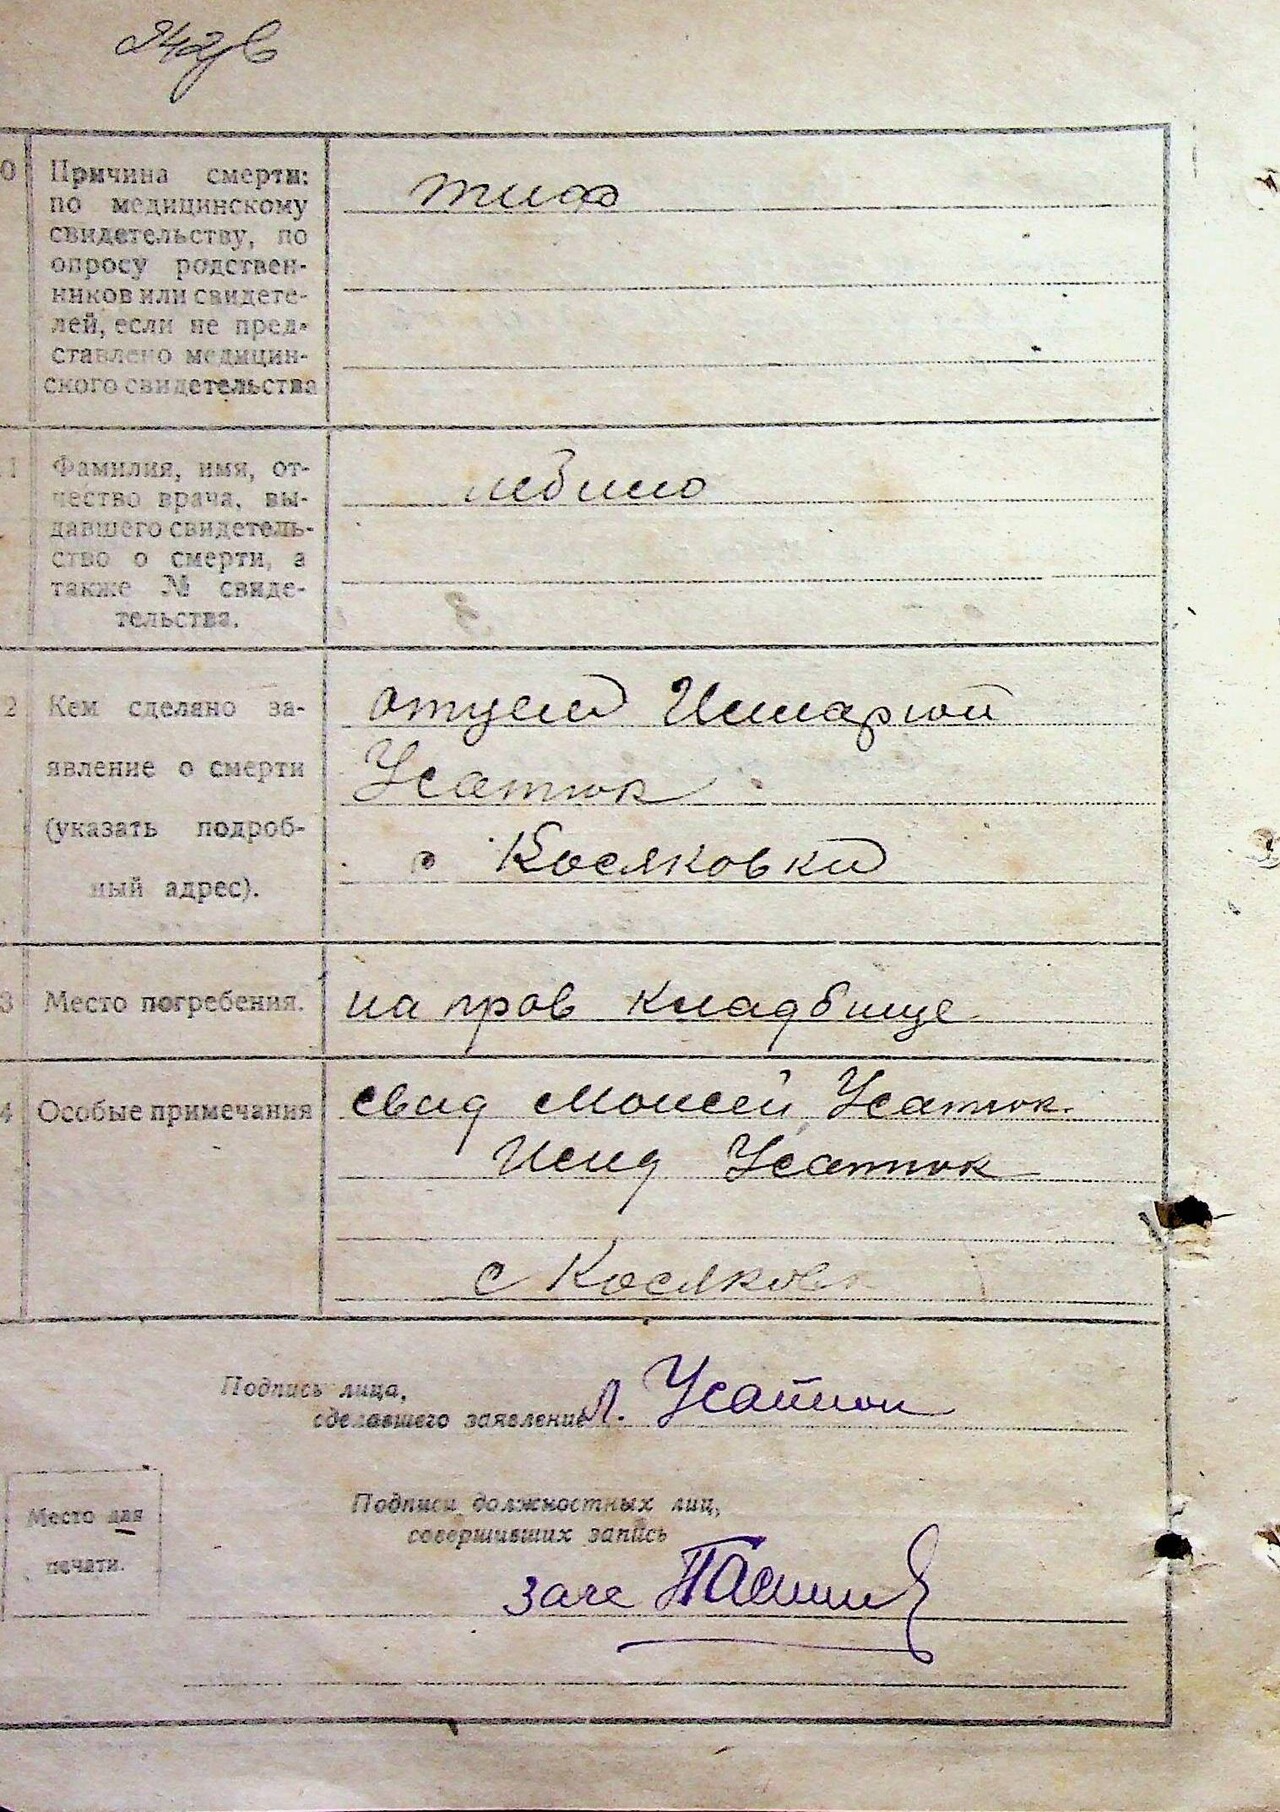 10
Причина смерти:
по медицинскому
свидетельству, по
опросу родствен-
ников или свидете-
лей, если не пред-
ставлено медицин-
ского свидетельства
тиф
11
Фамилия, имя, от-
чество врача, вы-
давшего свидетель-
ство о смерти, а
также № свиде-
тельства.
небыло
2
Кем сделано за-
явление о смерти
(указать подроб-
ный адрес).
отцем
Усатюк
с Косяковки
3
Место погребения.
на прав кладбище
4
Особые примечания
свид Моисей Усатюк
Усатюк
с Косяковк
Подпись лица,
сделавшего заявление
Л. Усатюк
Место для
печати.
Подписи должностных лиц,
совершивших запись